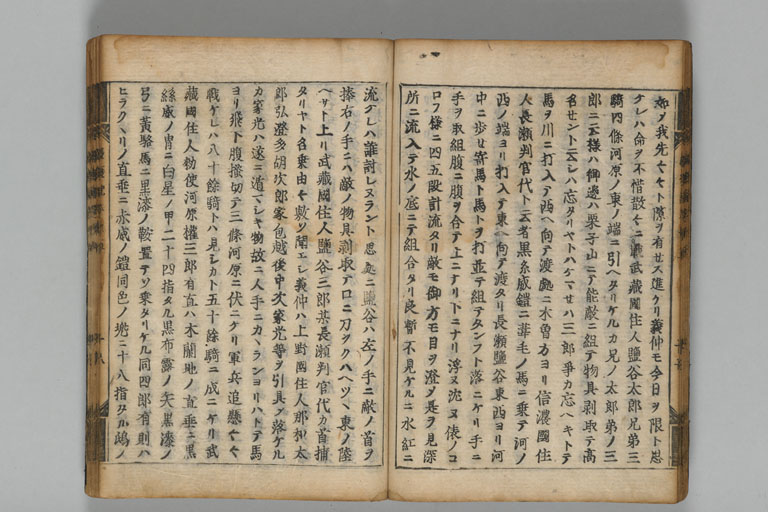 如ノ我先ニヤト隙ヲ有セス進ケリ義仲モ今日ヲ限ト思
ケレハ命ヲ不惜散々ニ戦武藏國住人鹽谷太郎兄弟三
騎四條河原ノ東ノ端ニ引ヘタリケルカ兄ノ太郎弟ノ三
郎ニ云様ハ御邊ハ栗子山ニテ能敵ニ組テ物具剥取テ高
名セント云シハ忘タリヤトハケマセハ三郎争カ忘ヘキトテ
馬ヲ川ニ打入テ西ヘ向テ渡處ニ木曽方ヨリ信濃國住
人長瀬判官代ト云者黒糸威鎧ニ薄毛ノ馬ニ乗テ河ノ
西ノ端ヨリ打入テ東ヘ向テ渡タリ長瀬鹽谷東西ヨリ河
中ニ歩セ寄馬ト馬トヲ打並テ組テタンフト落ニケリ手ニ
手ヲ取組腹ニ腹ヲ合テ上ニナリ下ニナリ浮ヌ沈ヌ俵ノコ
ロフ様ニ四五段計流タリ敵モ御方モ目ヲ澄テ是ヲ見深
所ニ流入テ水ノ底ニテ組合タリ良暫不見ケルニ水紅ニ
流テレハ誰討レヌラント思處ニ鹽谷ハ左ノ手ニ敵ノ首ヲ
捧右ノ手ニハ敵ノ物具剥取テ口ニ刀ヲクハヘツヽ東ノ陸
ヘサト上リ武藏國住人鹽谷三郎某長瀬判官代カ首捕
タリヤト名乗由々敷ソ聞エシ義仲ハ上野國住人那和太
郎弘澄多胡次郎家包越後中次家光等ヲ引具テ落ケル
カ家光ハ遂ニ遁マシキ物故ニ人手ニカヽランヨリハトテ馬
ヨリ飛下腹掻切テ三條河原ニ伏ニケリ軍兵追懸々々
戦ケレハ八十餘騎トハ見シカト五十餘騎ニ成ニケリ武
藏國住人勅使河原權三郎有直ハ木蘭地ノ直垂ニ黒
絲威ノ冑ニ白星ノ甲二十四指タル黒布露ノ矢黒漆ノ
弓ニ黄駱馬ニ黒漆ノ鞍置テソ乗タリケル同四郎有則ハ
ヒラクヽリノ直垂ニ赤威ノ鎧同色ノ兠ニ十八指タル鴟ノ